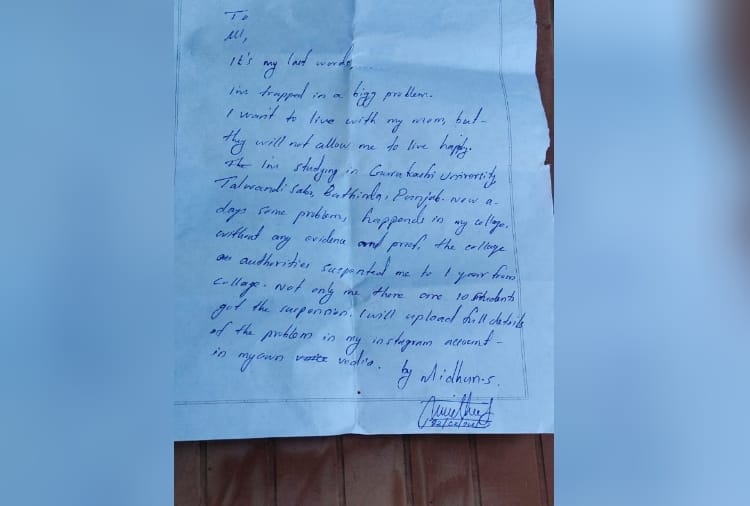 To
All,
It's my last words,.....
I'm trapped in a bigg problem.
I want to live with my mom, but-
they will not allow me to live happy.
I'm studying in Gurukashi University,
Talwandi Sabo, Bathinda, Punjab. Now a-
days some problem, happends in my collage.
without any evidence and proof. the collage
authorities suspented me to 1 year from
collage. Not only me there are 10 students
got the suspension. I will upload full details
of the problem in my instagram account-
in my own vedio.
by Midhun.s.